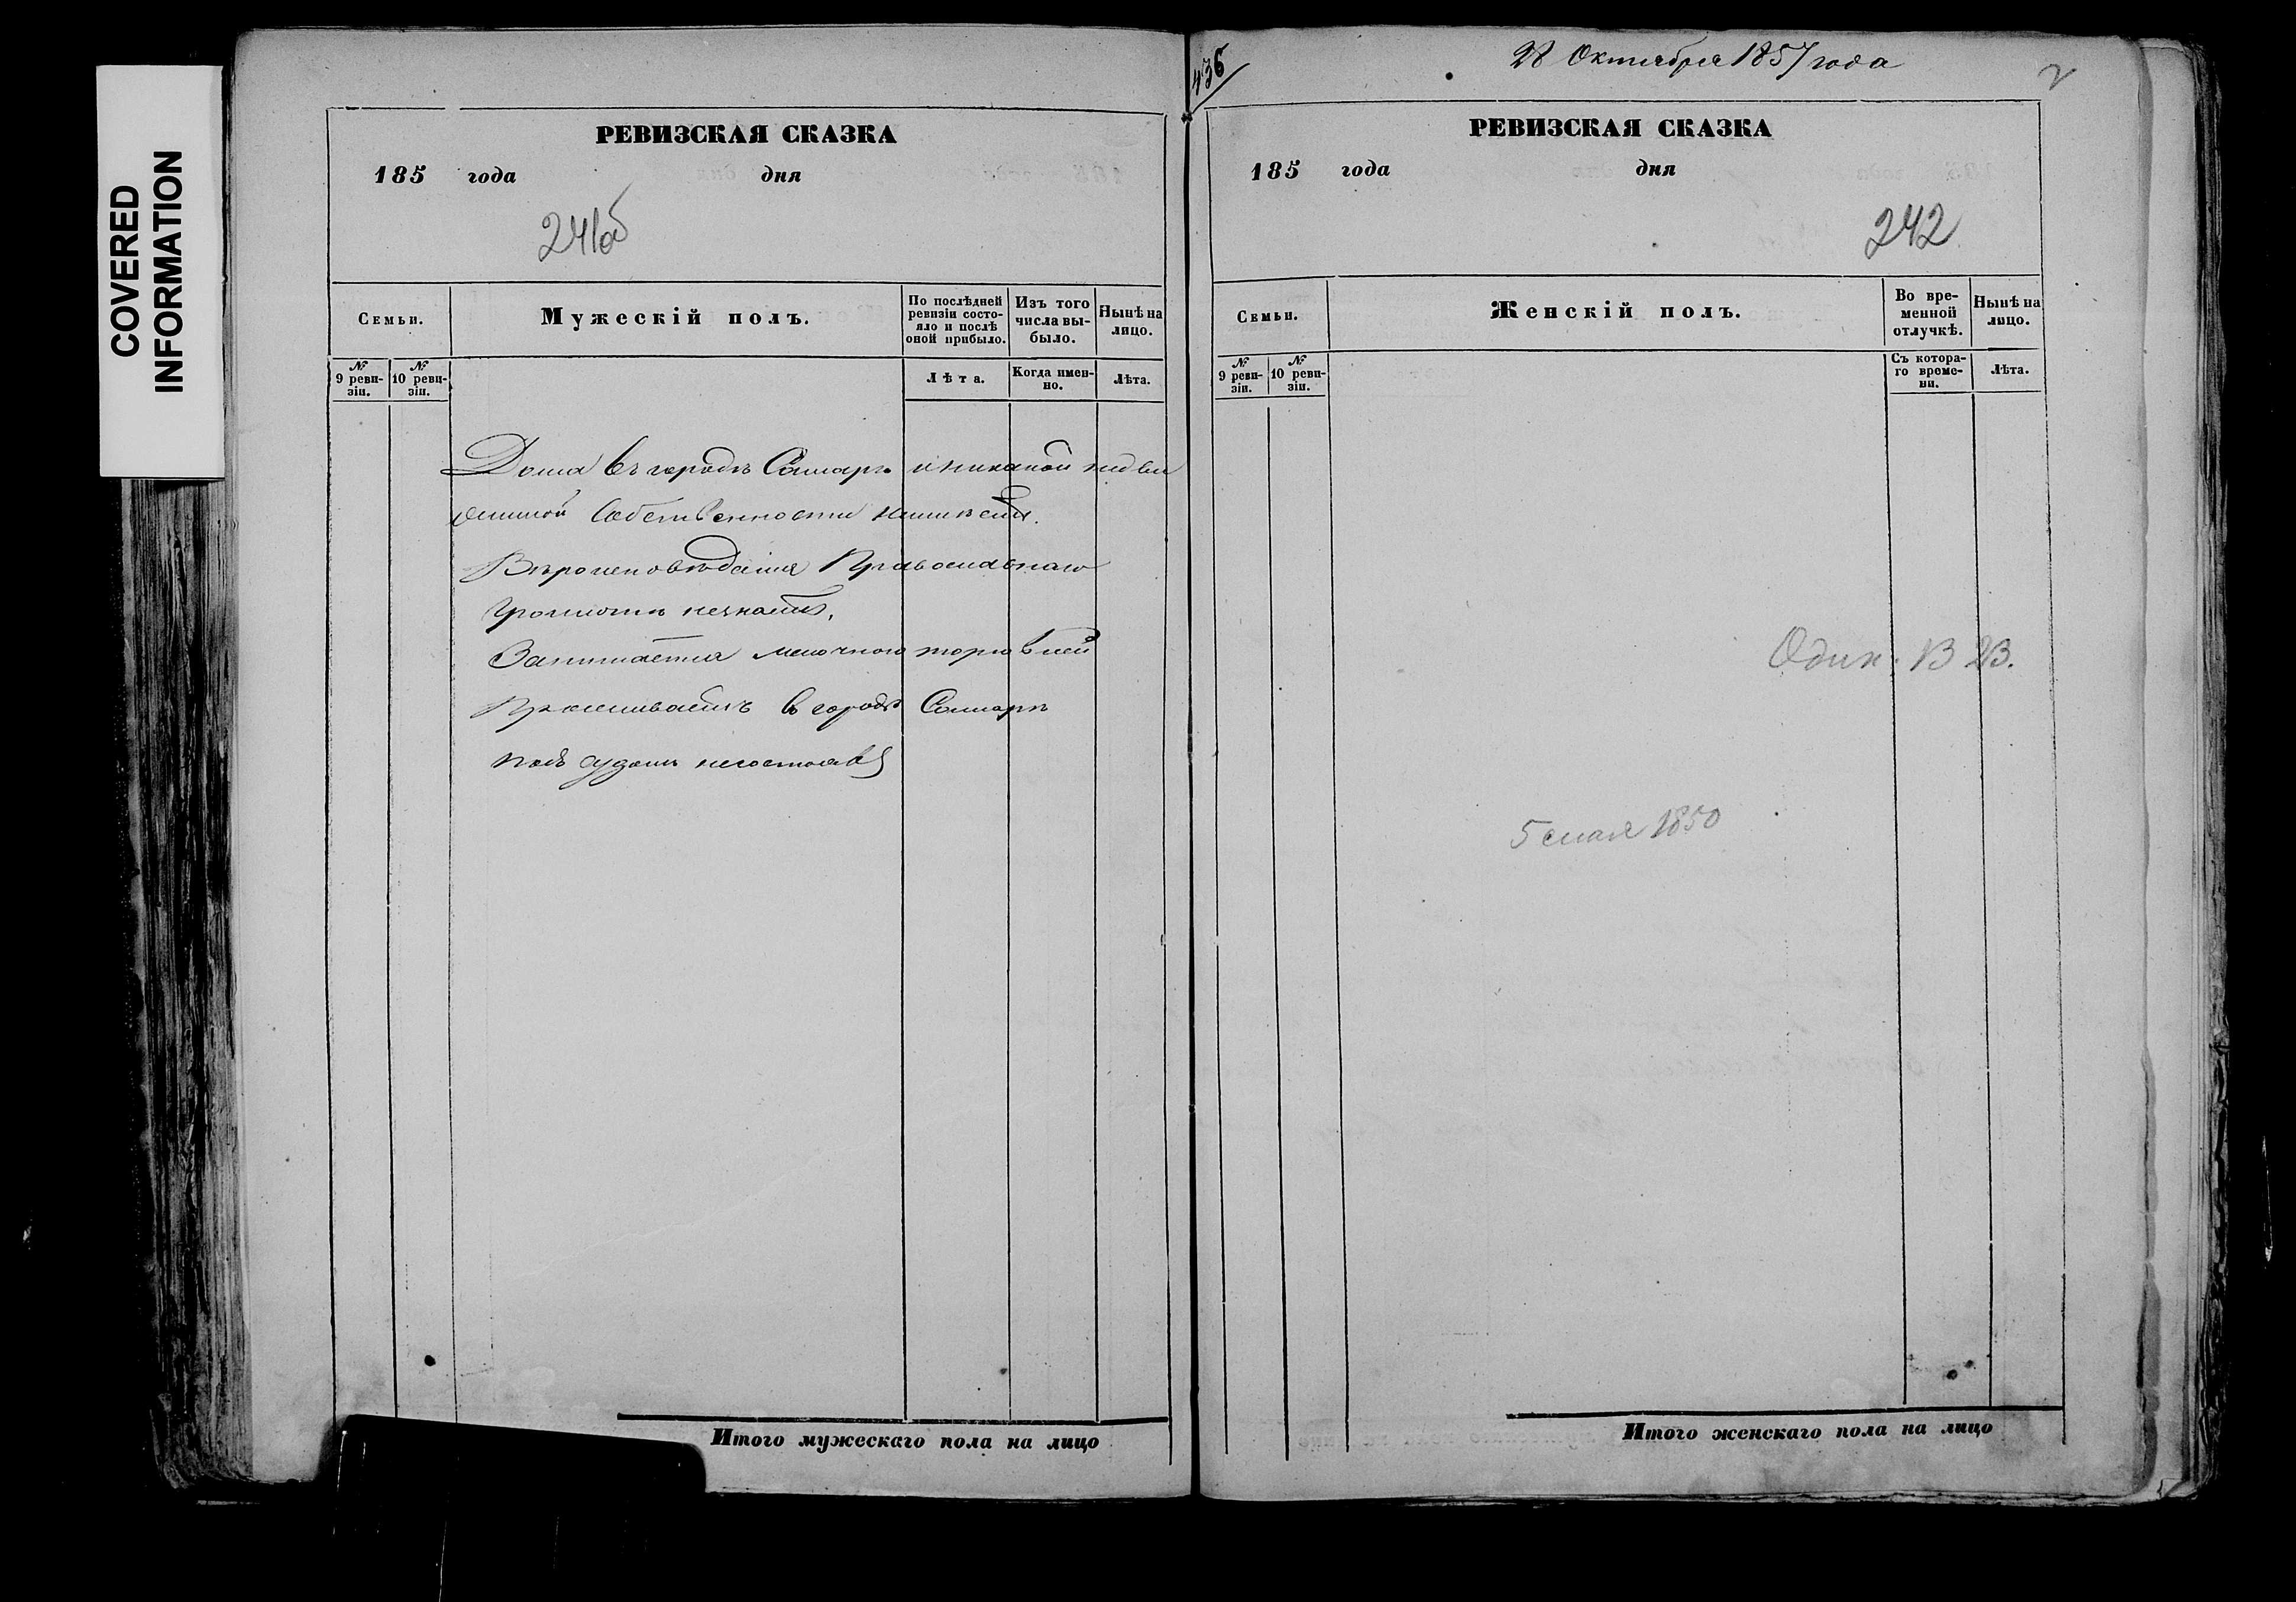 COVERED
INFORMATION
РЕВИЗСКАЯ СКАЗКА
185 года дня
241об
Семьи.
Мужескій полъ.
По послѣдней ревизіи состояло и послѣ оной прибыло.
Изъ того числа выбыло.
Нынѣ на лицо.
№ 9 ревизіи.
№ 10 ревизіи.
Лѣта.
Когда именно.
Лѣта.
Дома въ городѣ Самарѣ и никакой недви
жимой собственности неимѣетъ.
Вѣроисповѣданія Православнаго
Грамотѣ незнаетъ.
Занимается мелочною торговлей
Проживаетъ в городѣ Самарѣ
подъ судомъ несостоялъ
Итого мужескаго пола на лицо
436
28 Октября 1857 года
2
РЕВИЗСКАЯ СКАЗКА
185 года дня
242
Семьи.
Женскій полъ.
Во временной отлучкѣ.
Нынѣ на лицо.
№ 9 ревизіи.
№ 10 ревизіи.
Съ котораго времени.
Лѣта.
Один.
5 мая 1850
Итого женскаго пола на лицо